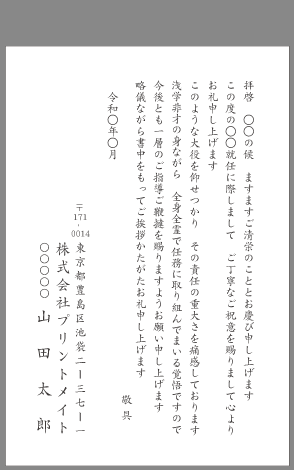 拝啓　〇〇の候　ますますご清栄のこととお慶び申し上げます
この度の〇〇就任に際しまして　ご丁寧なご祝意を賜りまして心より
お礼申し上げます
このような大役を仰せつかり　その責任の重大さを痛感しております
浅学非才の身ながら　全身全霊で任務に取り組んでまいる覚悟ですので
今後とも一層のご指導ご鞭撻を賜りますようお願い申し上げます
略儀ながら書中をもってご挨拶かたがたお礼申し上げます
敬具
令和〇年〇月
〒171-0014
東京都豊島区池袋二ー三七ー一
株式会社プリントメイト
〇〇〇〇〇　山田太郎